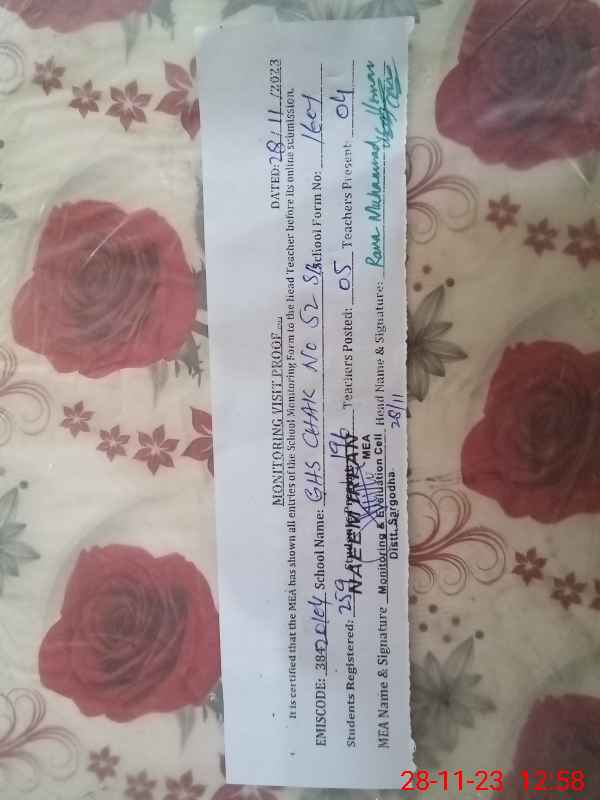 MONITORING VISIT PROOF
DATED: 28/11/2023
It is certified that the MEA has shown all entries of the School Monitoring Form to the head Teacher before its online submission.
EMISCODE: 38420104 School Name: GHS CHAK NO 52 S/B School Form No: 1604
Students Registered: 259 Students Present: 196 Teachers Posted: 05 Teachers Present: 04
NAEEM IRFAN
MEA
MEA Name & Signature Monitoring & Evaluation Cell Head Name & Signature: Rana Muhammad Usman
Distt. Sargodha.
28/11
28-11-23 12:58